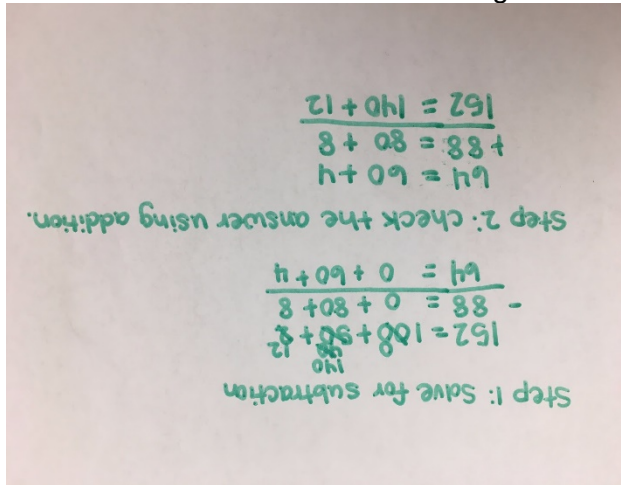 Step 1: Solve for subtraction
140
12
152 = 100 + 50 + 2
- 88 = 0 + 80 + 8
64 = 0 + 60 + 4
Step 2: check the answer using addition.
64 = 60 + 4
+ 88 = 80 + 8
152 = 140 + 12